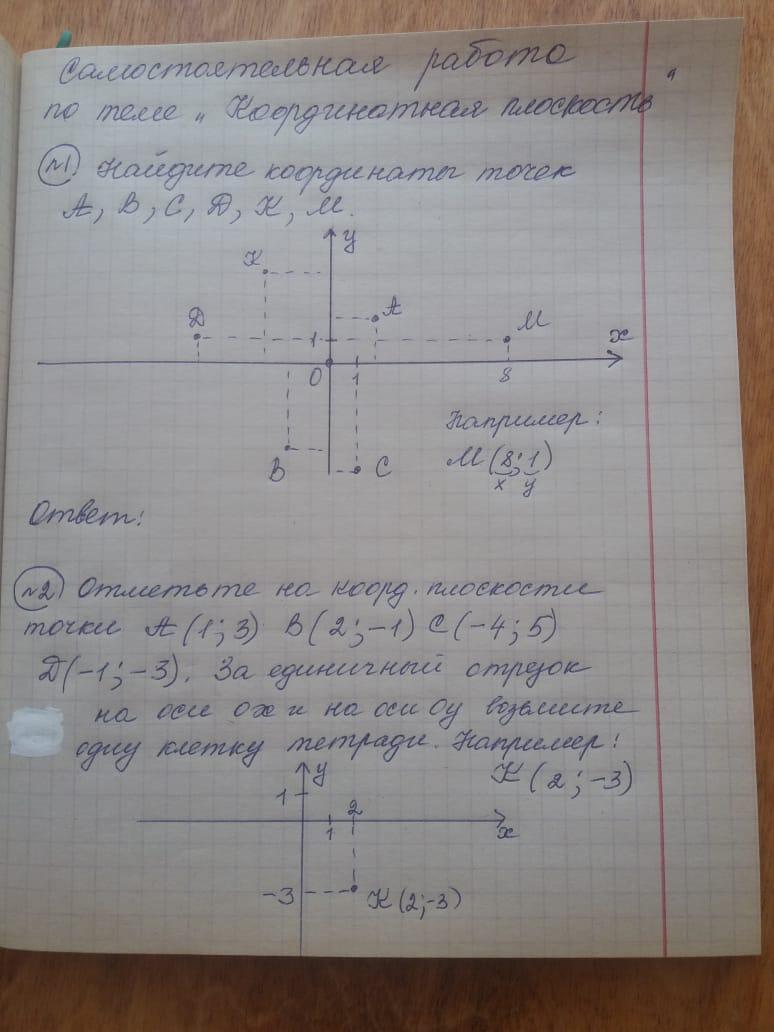 Самостоятельная работа
по теме „Координатная плоскость"
№1 Найдите координаты точек
А, В, С, Д, К, М.
у
К
Д
А
М
1
х
0 1 8
В
С
Например:
М(8;1)
х у
Ответ:
№2 Отметьте на коорд. плоскости
точки А(1;3) В(2;-1) С(-4;5)
Д(-1;-3). За единичный отрезок
на оси ох и на оси оу возьмите
одну клетку тетради. Например:
К(2;-3)
у
1
2
1
х
-3
К(2;-3)